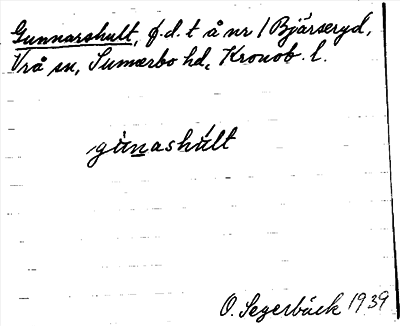 Gunnarshult, ø.d.t å nr 1 Bjärseryd,
Vrå sn, Sunnerbo hd, Kronob. l.
gùnashúlt
O. Segerbäck 1939